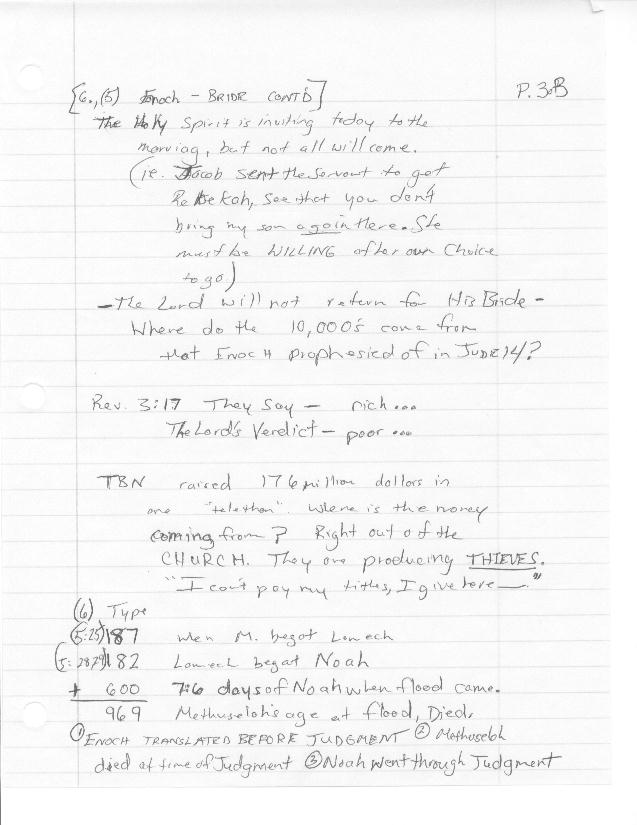 [6.,(5) Enoch - BRIDE CONT'D] P. 3.B
The Holy Spirit is inviting today to the
marriag, but not all will come.
(ie. Jacob sent the servant to get
Rebekah, see that you don't
bring my son again there. She
must be WILLING after own Choice
to go.)
- The Lord will not return for His Bride -
Where do the 10,000's come from
that ENOCH prophesied of in JUDE 14?
Rev. 3:17 They Say - rich...
The Lord's Verdict - poor...
TBN raised 176 million dollars in
one "telethon". Where is the money
coming from? Right out of the
CHURCH. They are producing THIEVES.
"I can't pay my tithes, I give here —."
(6) Type
(5:25) 187 when M. begot Lamech
(5:28,29) 182 Lamech begat Noah
+ 600 7:6 days of Noah when flood came.
969 Methuselah's age at flood, Died.
① ENOCH TRANSLATED BEFORE JUDGMENT ② Methuselah
died at time of Judgment ③ Noah went through Judgment